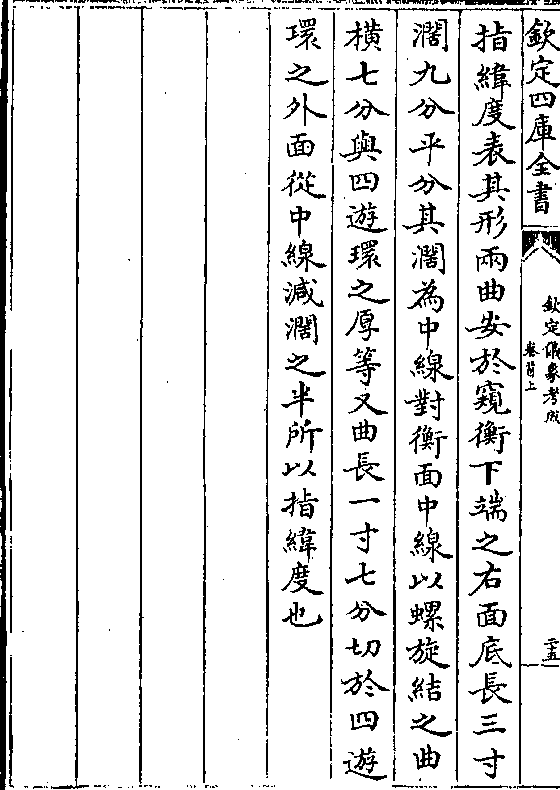 欽定四庫全書
欽定儀象考成
卷首上
二十五
指緯度表其形兩曲安於窺衡下端之右面底長三寸
濶九分平分其濶為中線對衡面中線以螺旋結之曲
橫七分與四遊環之厚等又曲長一寸七分切於四遊
環之外面從中線減濶之半所以指緯度也